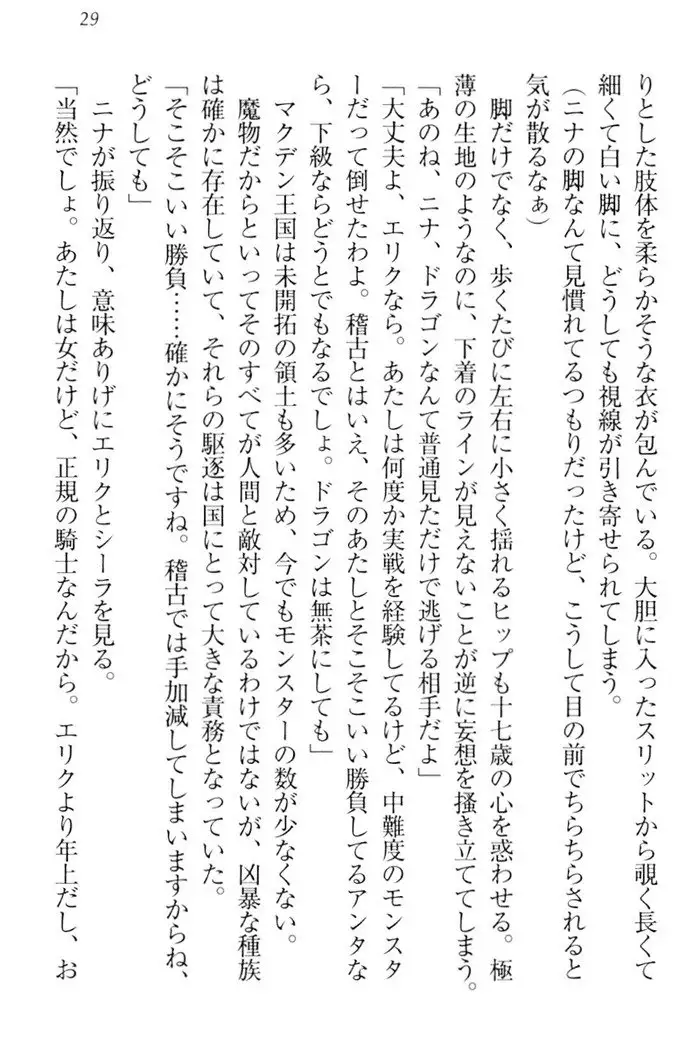 29
りとした肢体を柔らかそうな衣が包んでいる。大胆に入ったスリットから覗く長くて
細くて白い脚に、どうしても視線が引き寄せられてしまう。
(ニナの脚なんて見慣れてるつもりだったけど、こうして目の前でちらちらされると
気が散るなぁ)
脚だけでなく、歩くたびに左右に小さく揺れるヒップも十七歳の心を惑わせる。極
薄の生地のようなのに、下着のラインが見えないことが逆に妄想を掻き立ててしまう。
「あのね、ニナ、ドラゴンなんて普通見ただけで逃げる相手だよ」
「大丈夫よ、エリクなら。あたしは何度か実戦を経験してるけど、中難度のモンスタ
ーだって倒せたわよ。稽古とはいえ、そのあたしとそこそこいい勝負してるアンタな
ら、下級ならどうとでもなるでしょ。ドラゴンは無茶にしても」
マクデン王国は未開拓の領土も多いため、今でもモンスターの数が少なくない。
魔物だからといってそのすべてが人間と敵対しているわけではないが、凶暴な種族
は確かに存在していて、それらの駆逐は国にとって大きな責務となっていた。
「そこそこいい勝負……確かにそうですね。稽古では手加減してしまいますからね、
どうしても」
ニナが振り返り、意味ありげにエリクとシーラを見る。
「当然でしょ。あたしは女だけど、正規の騎士なんだから。エリクより年上だし、お